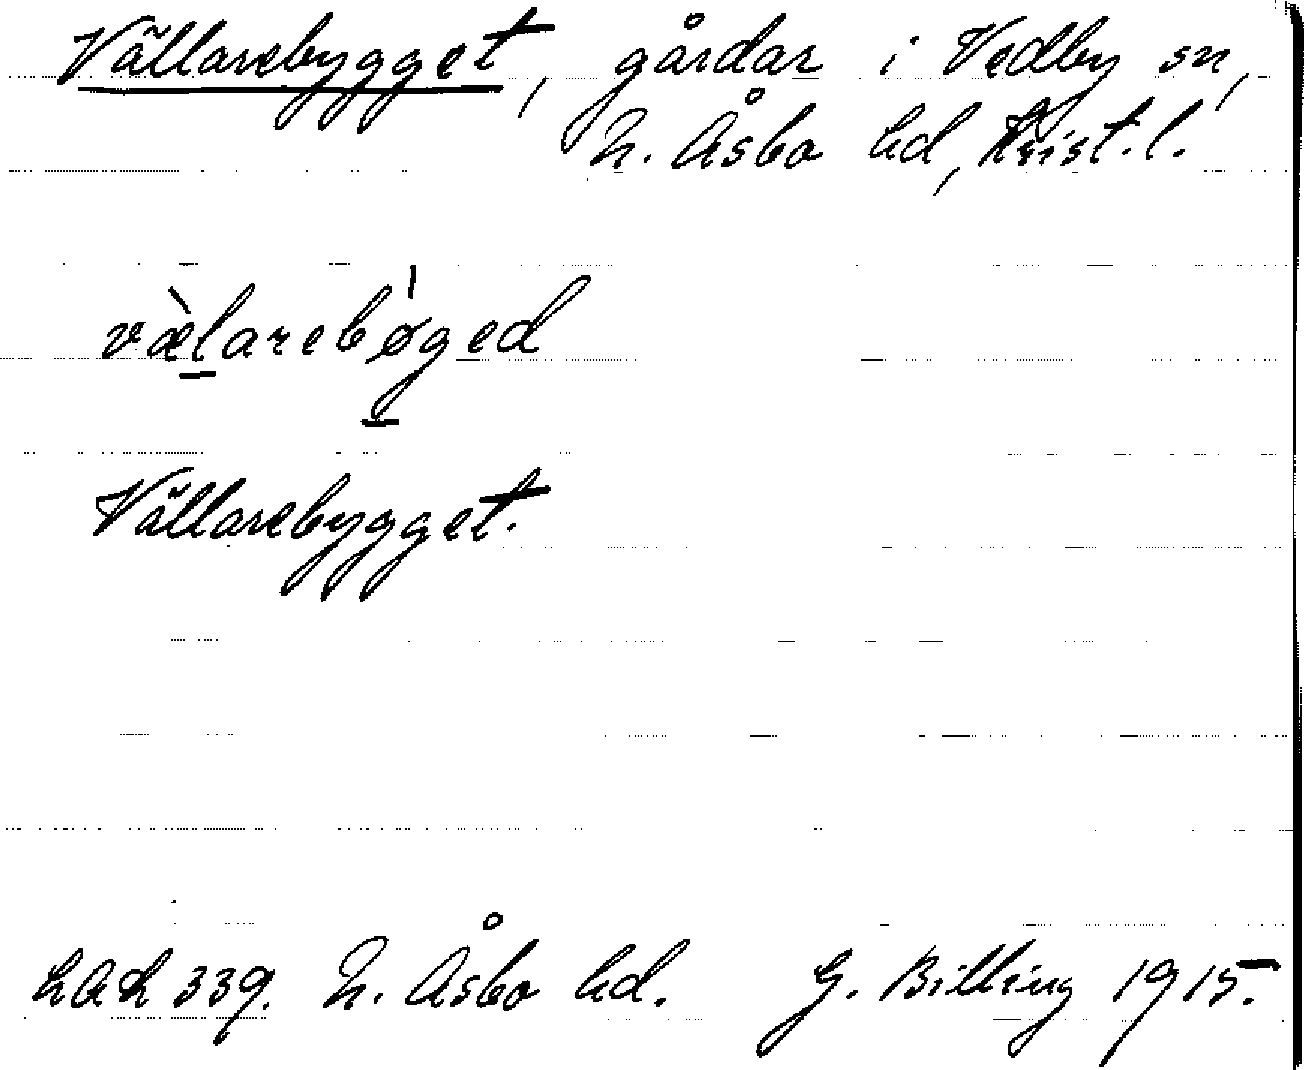 Vällarebygget, gårdar i Vedby sn,
N. Åsbo hd, Krist. l.
vælarebøged
Vällarebygget.
LAL 339. N. Åsbo hd. G. Billing 1915.